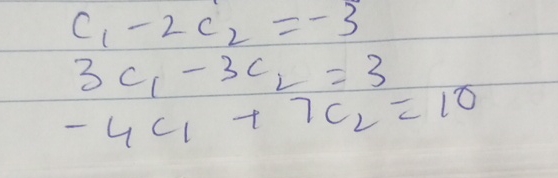 c₁ - 2c₂ = -3
3c₁ - 3c₂ = 3
-4c₁ + 7c₂ = 10